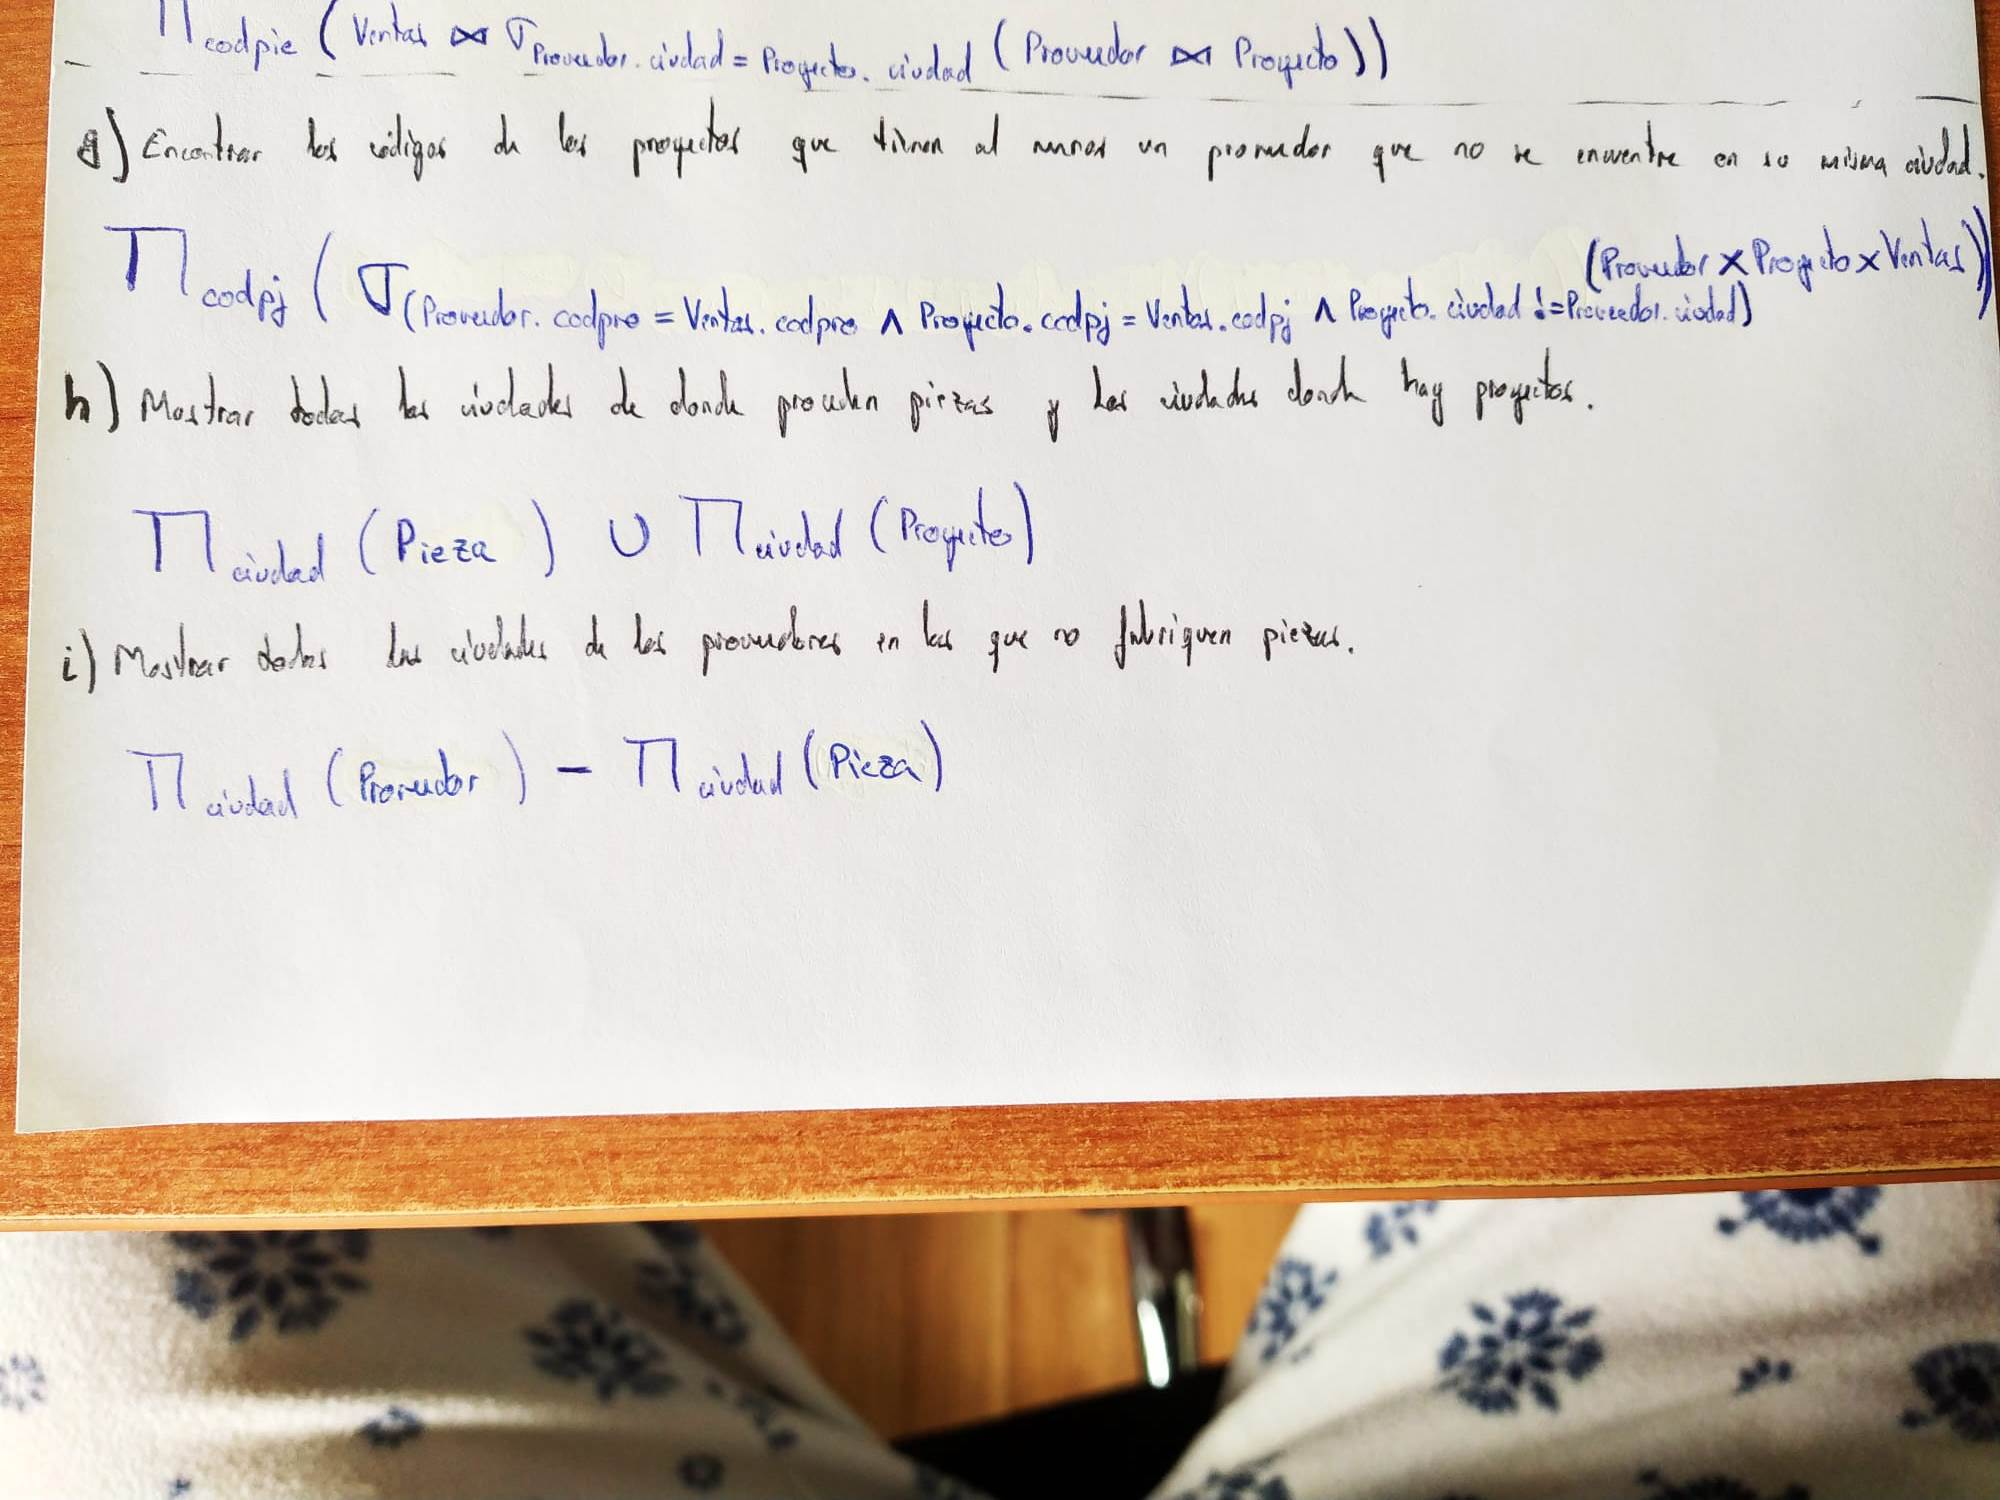 Π codpie (Ventas ⋈ σ Proveedor.ciudad = Proyecto.ciudad (Proveedor ⋈ Proyecto))
g) Encontrar los códigos de los proyectos que tienen al menos un proveedor que no se encuentre en su misma ciudad.
Π codpj (σ (Proveedor.codpro = Ventas.codpro ∧ Proyecto.codpj = Ventas.codpj ∧ Proyecto.ciudad != Proveedor.ciudad) (Proveedor × Proyecto × Ventas))
h) Mostrar todas las ciudades de donde proceden piezas y las ciudades donde hay proyectos.
Π ciudad (Pieza) ∪ Π ciudad (Proyecto)
i) Mostrar todas las ciudades de los proveedores en las que no fabriquen piezas.
Π ciudad (Proveedor) − Π ciudad (Pieza)